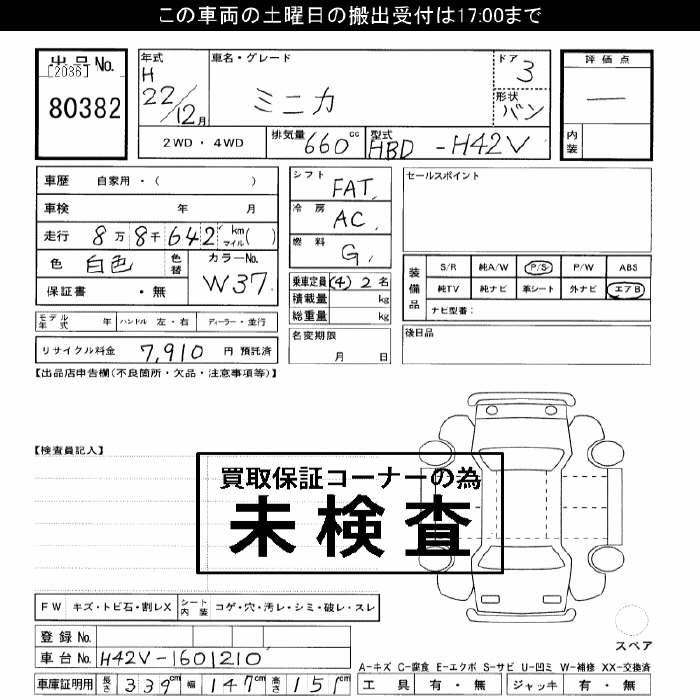 この車両の土曜日の搬出受付は17:00まで
出品No. [2036] 80382
年式 H 22/12月
車名・グレード ミニカ
ドア 3
形状 バン
評価点 —
内装
2WD・4WD 排気量 660cc 型式 HBD-H42V
車歴 自家用・( )
車検 年 月
走行 8万8千642 km マイル( )
色 白色 色替 カラーNo. W37
保証書 ・無
モデル年式 年 ハンドル 左・右 ディーラー・並行
リサイクル料金 7,910 円 預託済
シフト FAT
冷房 AC
燃料 G
乗車定員 (4) 2名
積載量 kg
総重量 kg
名変期限 月 日
セールスポイント
装備品 S/R 純A/W P/S P/W ABS
純TV 純ナビ 革シート 外ナビ エアB
ナビ型番:
後日品
【出品店申告欄(不良箇所・欠品・注意事項等)】
【検査員記入】
買取保証コーナーの為
未検査
FW キズ・トビ石・割レX シート内装 コゲ・穴・汚レ・シミ・破レ・スレ
登録No.
車台No. H42V-1601210
スペア
A-キズ C-腐食 E-エクボ S-サビ U-凹ミ W-補修 XX-交換済
車庫証明用 長さ 339cm 幅 147cm 高さ 151cm 工具 有・無 ジャッキ 有・無